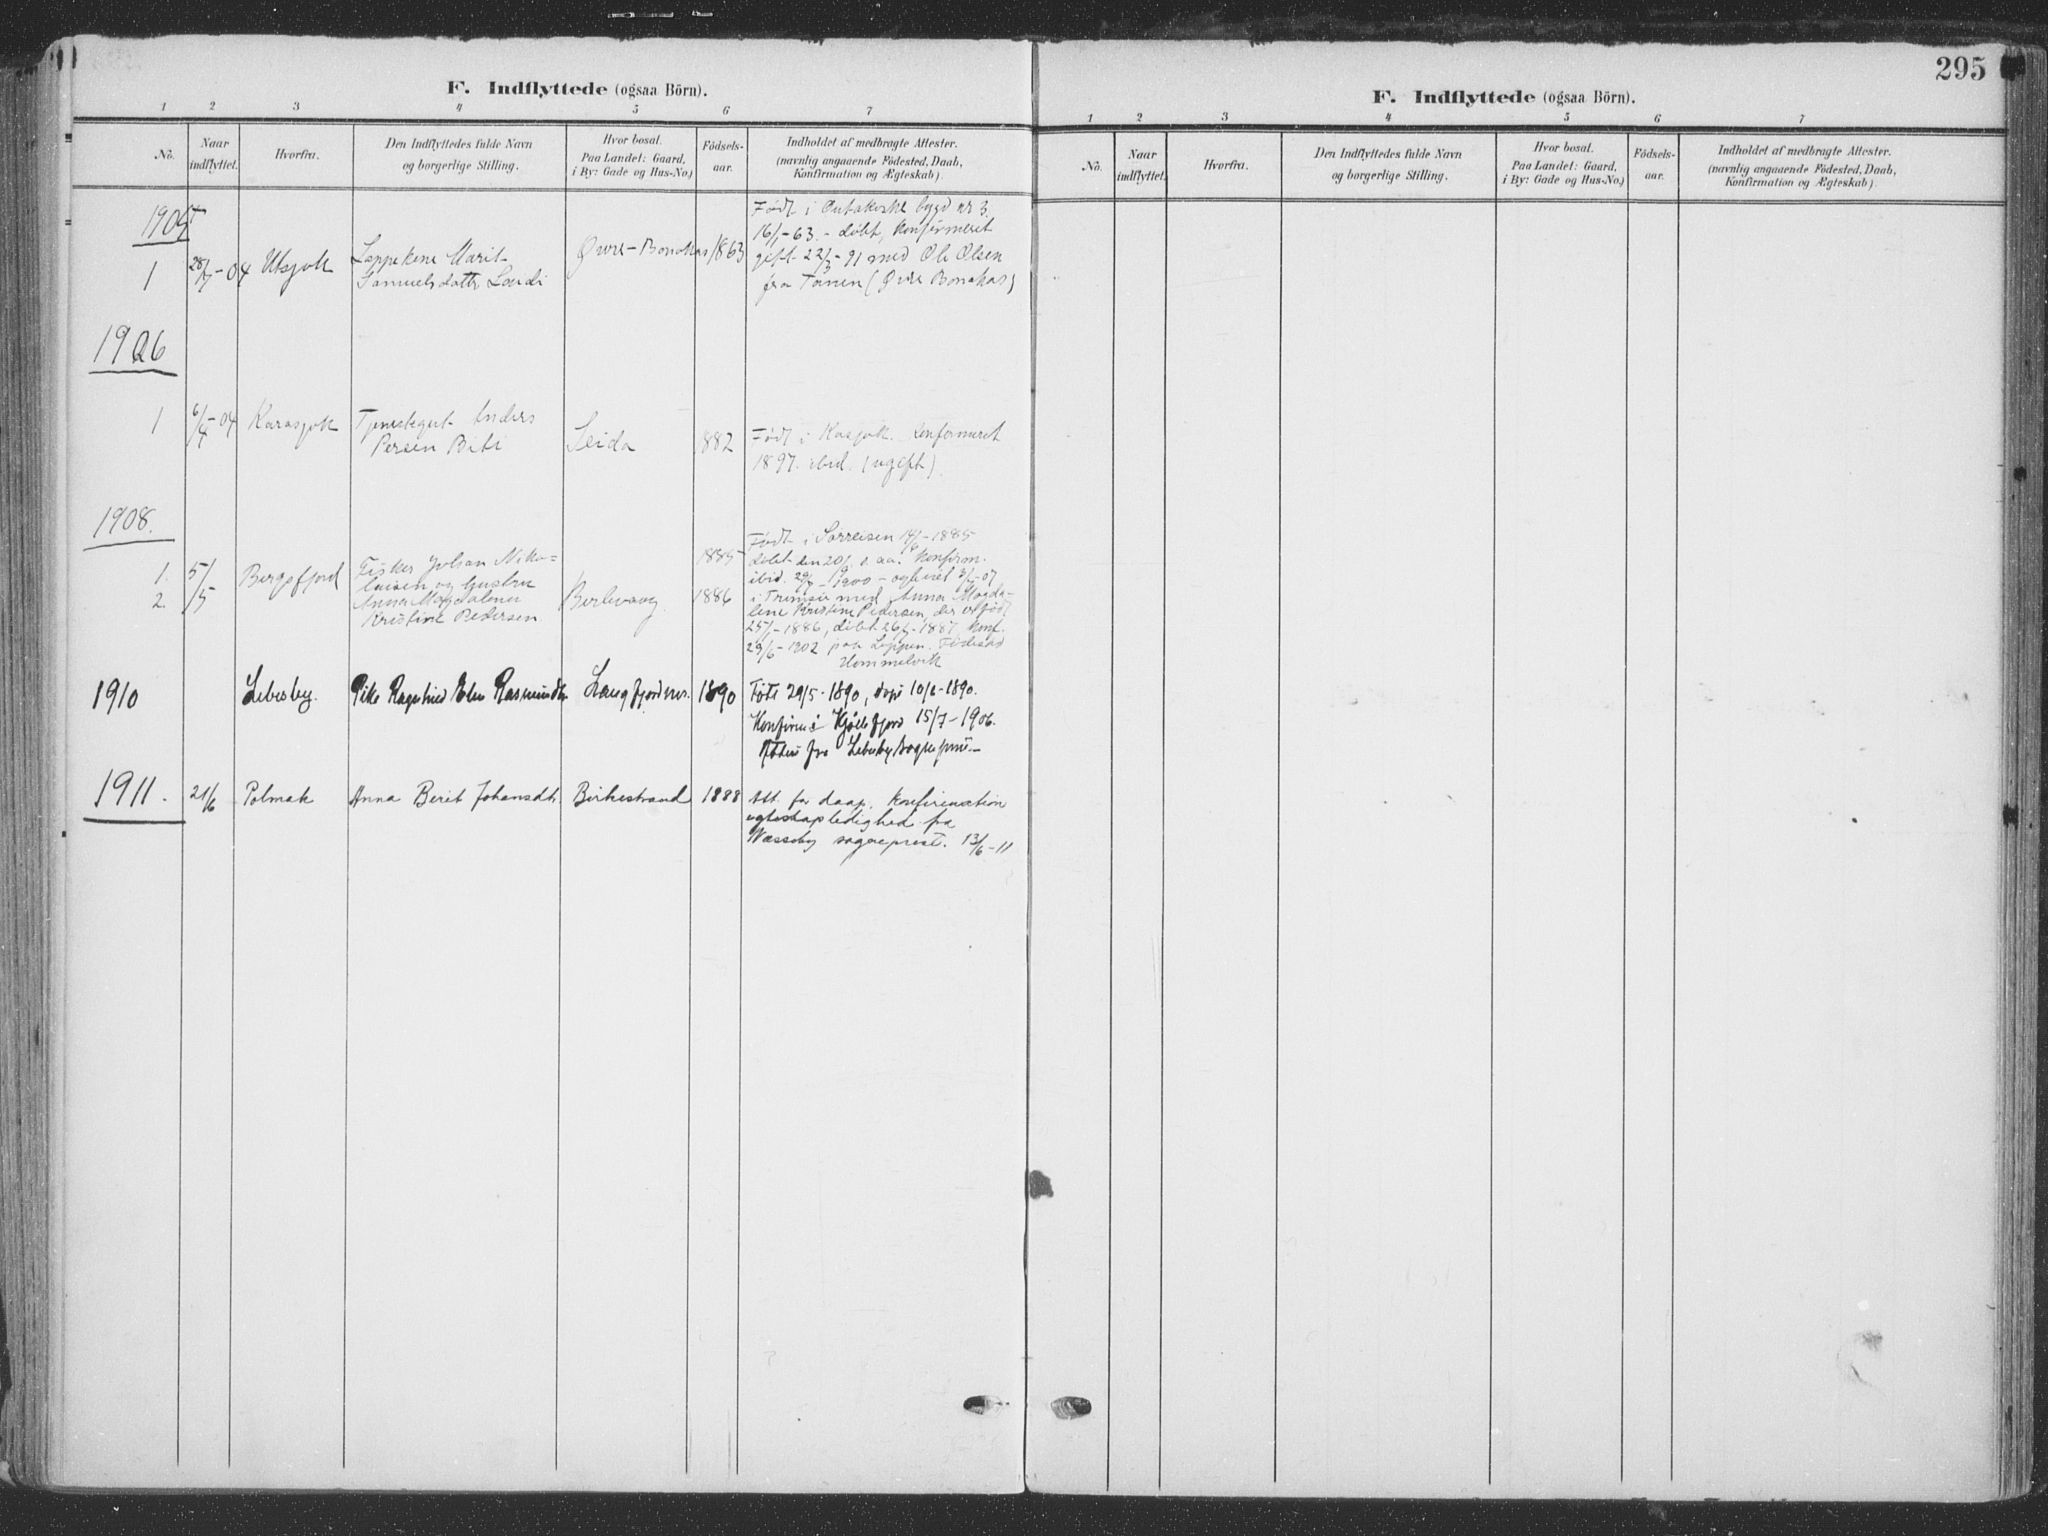 295
F. Indflyttede (ogsaa Börn).
1 2 3 4 5 6 7
No. Naar indflyttet. Hvorfra. Den Indflyttedes fulde Navn og borgerlige Stilling. Hvor bosat. Paa Landet: Gaard, i By: Gade og Hus-No.) Födsels-aar. Indholdet af medbragte Attester. (navnlig angaaende Födested, Daab, Konfirmation og Ægteskab).
1905
1 28/7-04 Utsjok Lappekone Marit Øvre-Bonakas 1863 Født i
Samuelsdatter
16/1-63. - døbt, konfirmeret
gift 22/3-91 med Ole Olsen
fra Tanen (Øvre Bonakas)
1906
1 6/4-04 Karasjok Tjenestegut Anders
Persen Biti Leida 1882 Født i Kasjok. Konfermeret
1897. ibid. (ugift)
1908.
1. 5/5 Bergsfjord Fisker Johan Niko-
laisen og hustru
2. Anna Magdalena
Kristine Pedersen. Berlevaag 1885
1886
Født i Sørreisen 1885
døbt den s. aa. Konfirm.
ibid. 1900 -
i Tromsø med Anna Magda-
lene Kristine Pedersen, der er født
1886, døbt 1887, konf.
29/6-1902 paa Loppen. Fødested
Hommelvik
1910 Lebesby. Pike Ragnhild Elen Rasmusdtr. Langfjordnes. 1890 Føtt 29/5-1890, døpt 10/6-1890.
Konfirm i Kjøllefjord 15/7-1906.
fra Lebesby sogneprest.
1911. 21/6 Polmak Anna Berit Johansdtr. Birkestrand 1888 Att. for daap, konfirmation
egteskapsledighed fra
Næsseby sogneprest. 13/6-11
F. Indflyttede (ogsaa Börn).
1 2 3 4 5 6 7
No. Naar indflyttet. Hvorfra. Den Indflyttedes fulde Navn og borgerlige Stilling. Hvor bosat. Paa Landet: Gaard, i By: Gade og Hus-No.) Födsels-aar. Indholdet af medbragte Attester. (navnlig angaaende Födested, Daab, Konfirmation og Ægteskab).